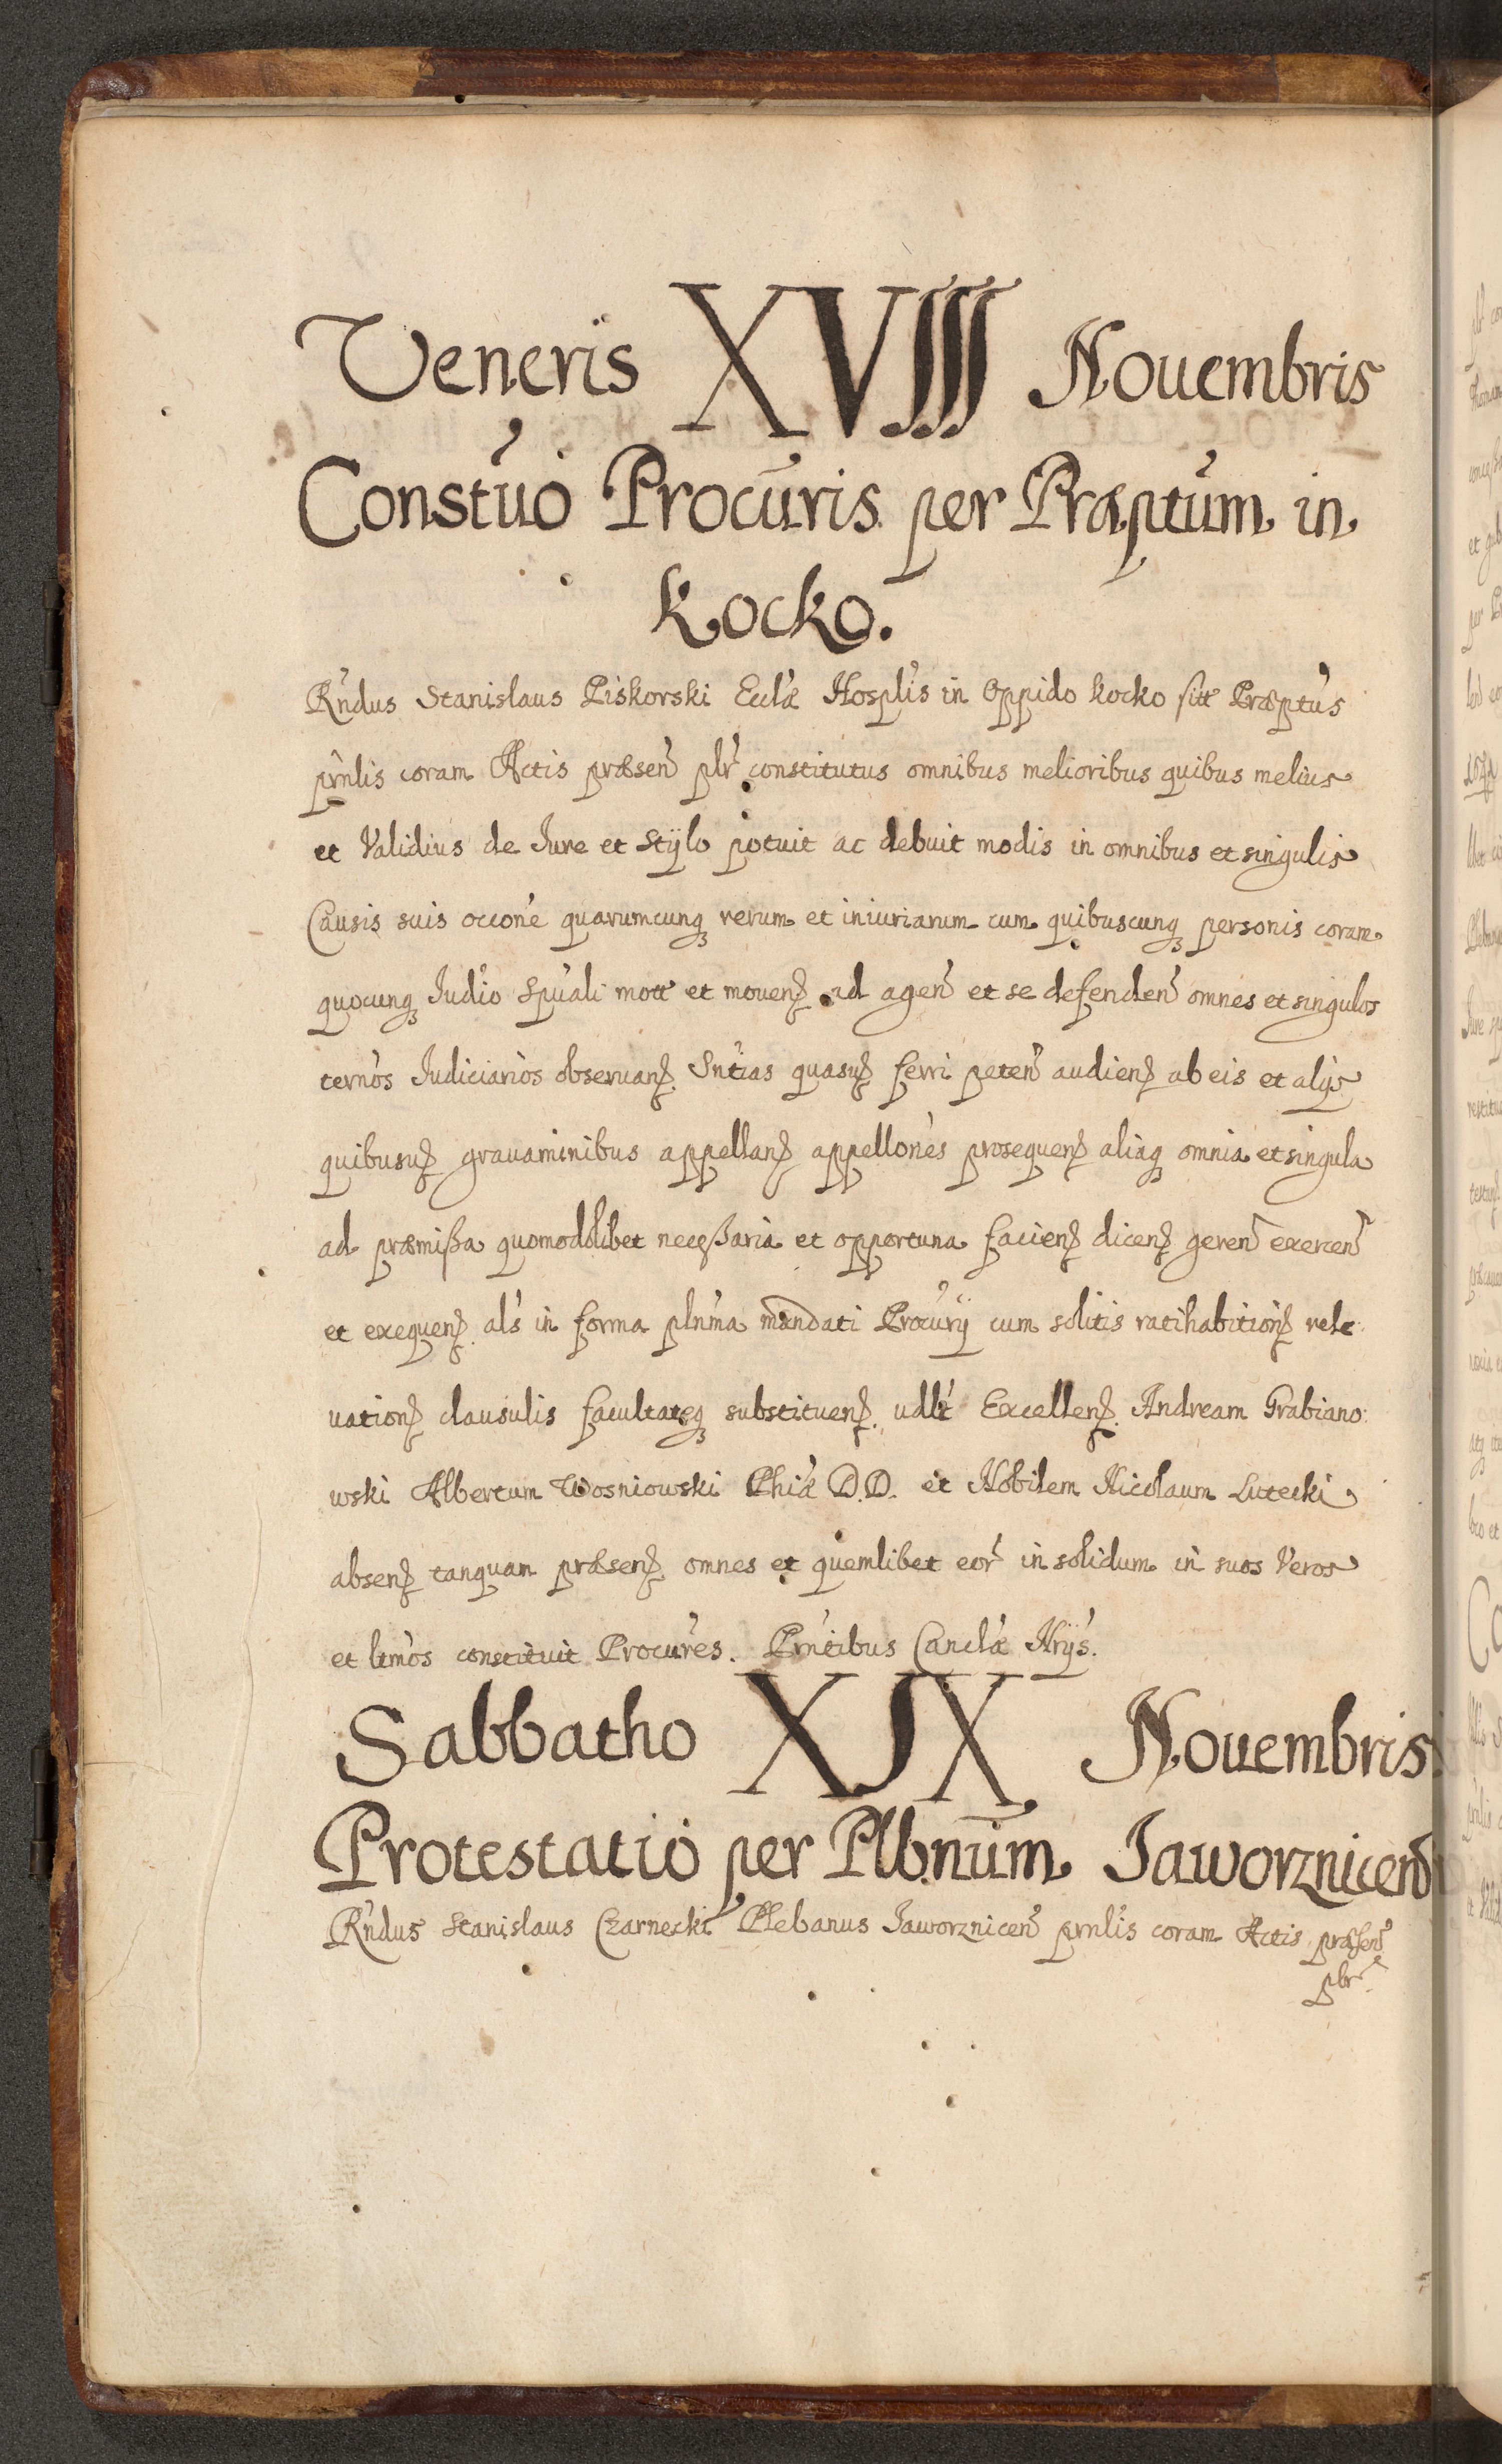 Veneris XVIII Nouembris
Constuo Procuris per Præptum in
Kocko.
Rndus Stanislaus Piskorski Eccłæ Hosplis in Oppido Kocko sitæ Præptus
prnlis coram Actis præsen plr constitutus omnibus melioribus quibus melius
et Validius de Iure et Stÿlo potuit ac debuit modis in omnibus et singulis
Causis suis occone quarumcunq rerum et iniuriarum cum quibuscunq personis coram
quocunq Iudio Spuali mott et mouen ad agen et se defenden omnes et singulos
ternos Iudiciarios obseruan Sntias quasuis ferri peten audien ab eis et alÿs
quibusuis grauaminibus appellan appellones prosequen aliaq omnia et singula
ad præmißa quomodolibet neceßaria et opportuna facien dicen geren exercen
et exequen als in forma plnma mandati Procurÿ cum solitis ratihabition rele:
uation clausulis facultateq substituen udlt Excellen Andream Grabiano:
wski Albertum Wosniowski Phiæ D.D. et Nobilem Nicolaum Lutecki
absen tanquam præsen omnes et quemlibet eor in solidum in suos Veros
et ltmos constituit Procures. Prntibus Canclæ Nrÿs.
Sabbatho XIX Nouembris
Protestatio per Plbnum Jaworznicen
Rndus Stanislaus Czarnecki Plebanus Jaworznicen prnlis coram Actis præsen
plr